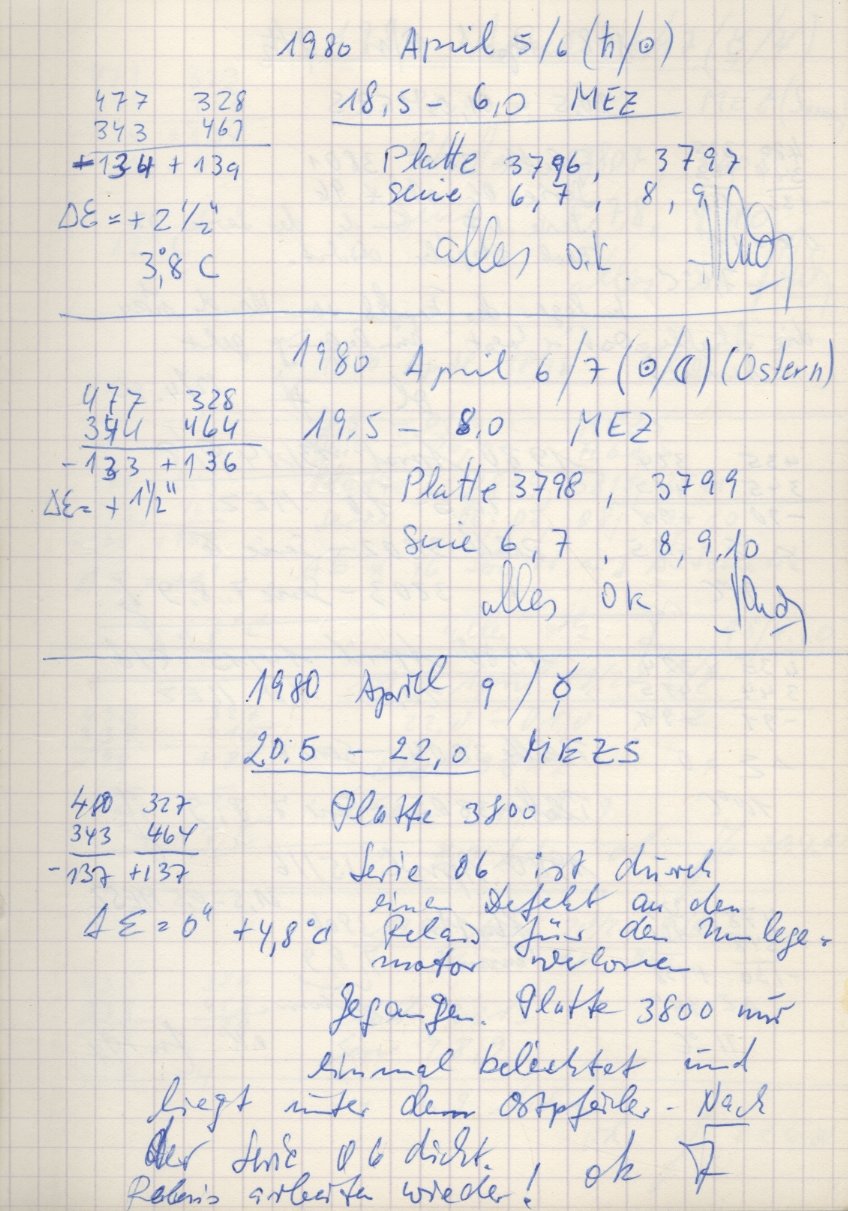 1980 April 5/6 (♄/☉)
477 328
18,5 – 6,0 MEZ
343 467
-134 + 139
Platte 3796, 3797
Serie 6, 7, 8, 9
ΔE = + 2 1/2"
alles o.k.
3,°8 C
1980 April 6/7 (☉/☾) (Ostern)
477 328
344 464
19,5 – 8,0 MEZ
-133 +136
Platte 3798, 3799
ΔE = + 1 1/2"
Serie 6, 7, 8, 9, 10
alles ok
1980 April 9 / ☿
20.5 – 22,0 MEZS
480 327
Platte 3800
343 464
-137 +137
Serie 06 ist durch
einen Defekt an den
ΔE = 0" +4,8°C
Relais für den Umlege-
motor verloren
gegangen. Platte 3800 nur
einmal belichtet und
liegt unter dem Ostpfeiler. Nach
der Serie 06 dicht.
Relais arbeiten wieder! ok